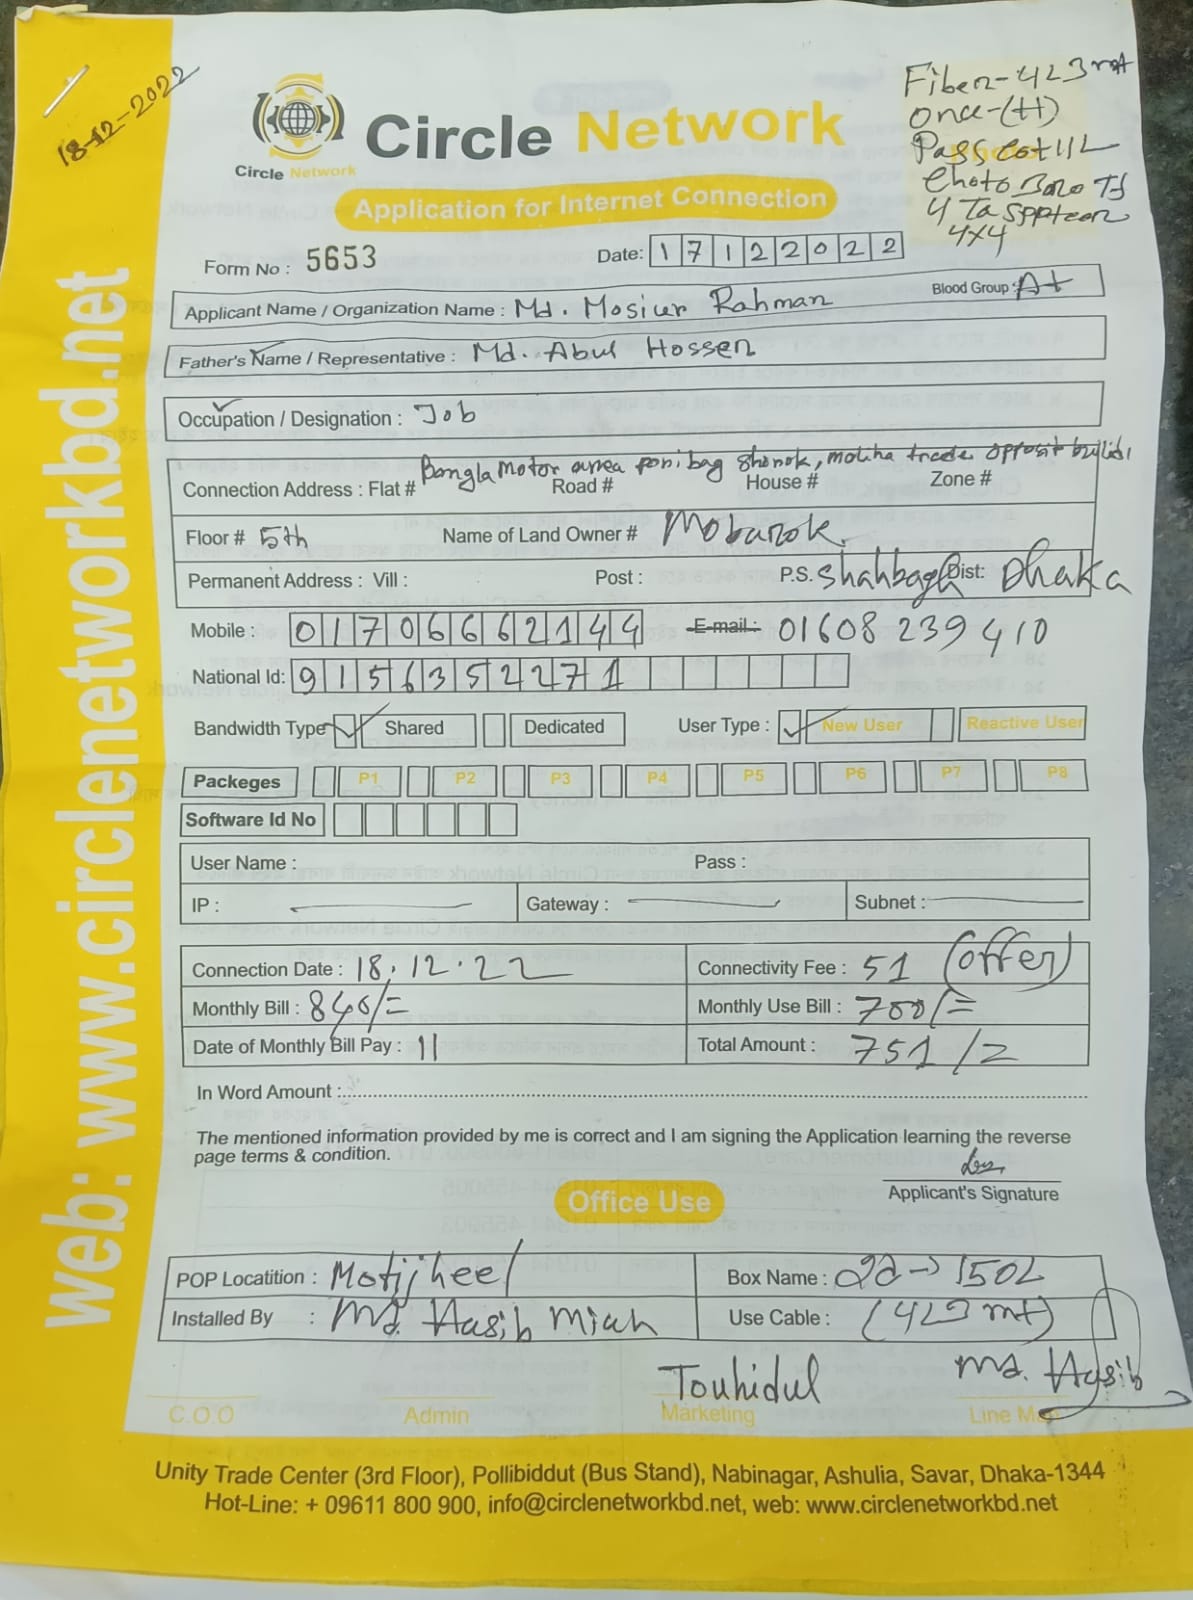 18-12-2022
Fiber-423 mt
Once-(H)
Pass
Choto Boro TJ
4 Ta
4x4
Circle Network
Circle Network
Application for Internet Connection
Form No : 5653
Date: 17122022
Applicant Name / Organization Name : Md. Mosiur Rahman Blood Group : A+
Father's Name / Representative : Md. Abul Hossen
Occupation / Designation : Job
Bangla Motor area poribag shorok, moliha trade opposit
Connection Address : Flat # Road # House # Zone #
Floor # 5th Name of Land Owner # Mobarok.
Permanent Address : Vill : Post : P.S. Shahbagh Dist: Dhaka
Mobile : 01706662144 E-mail : 01608 239 410
National Id: 9156352271
Bandwidth Type Shared Dedicated User Type : New User Reactive User
Packeges P1 P2 P3 P4 P5 P6 P7 P8
Software Id No
User Name : Pass :
IP : Gateway : Subnet :
Connection Date : 18.12.22 Connectivity Fee : 51 (offer)
Monthly Bill : 840/= Monthly Use Bill : 700/=
Date of Monthly Bill Pay : 11 Total Amount : 751/=
In Word Amount :
The mentioned information provided by me is correct and I am signing the Application learning the reverse
page terms & condition.
Applicant's Signature
Office Use
POP Locatition : Motijheel Box Name : 2d→150L
Installed By : Md. Hasib Miah Use Cable : (423 mt)
Touhidul Md. Hasib
C.O.O Admin Marketing Line Man
Unity Trade Center (3rd Floor), Pollibiddut (Bus Stand), Nabinagar, Ashulia, Savar, Dhaka-1344
Hot-Line: + 09611 800 900, info@circlenetworkbd.net, web: www.circlenetworkbd.net
web: www.circlenetworkbd.net